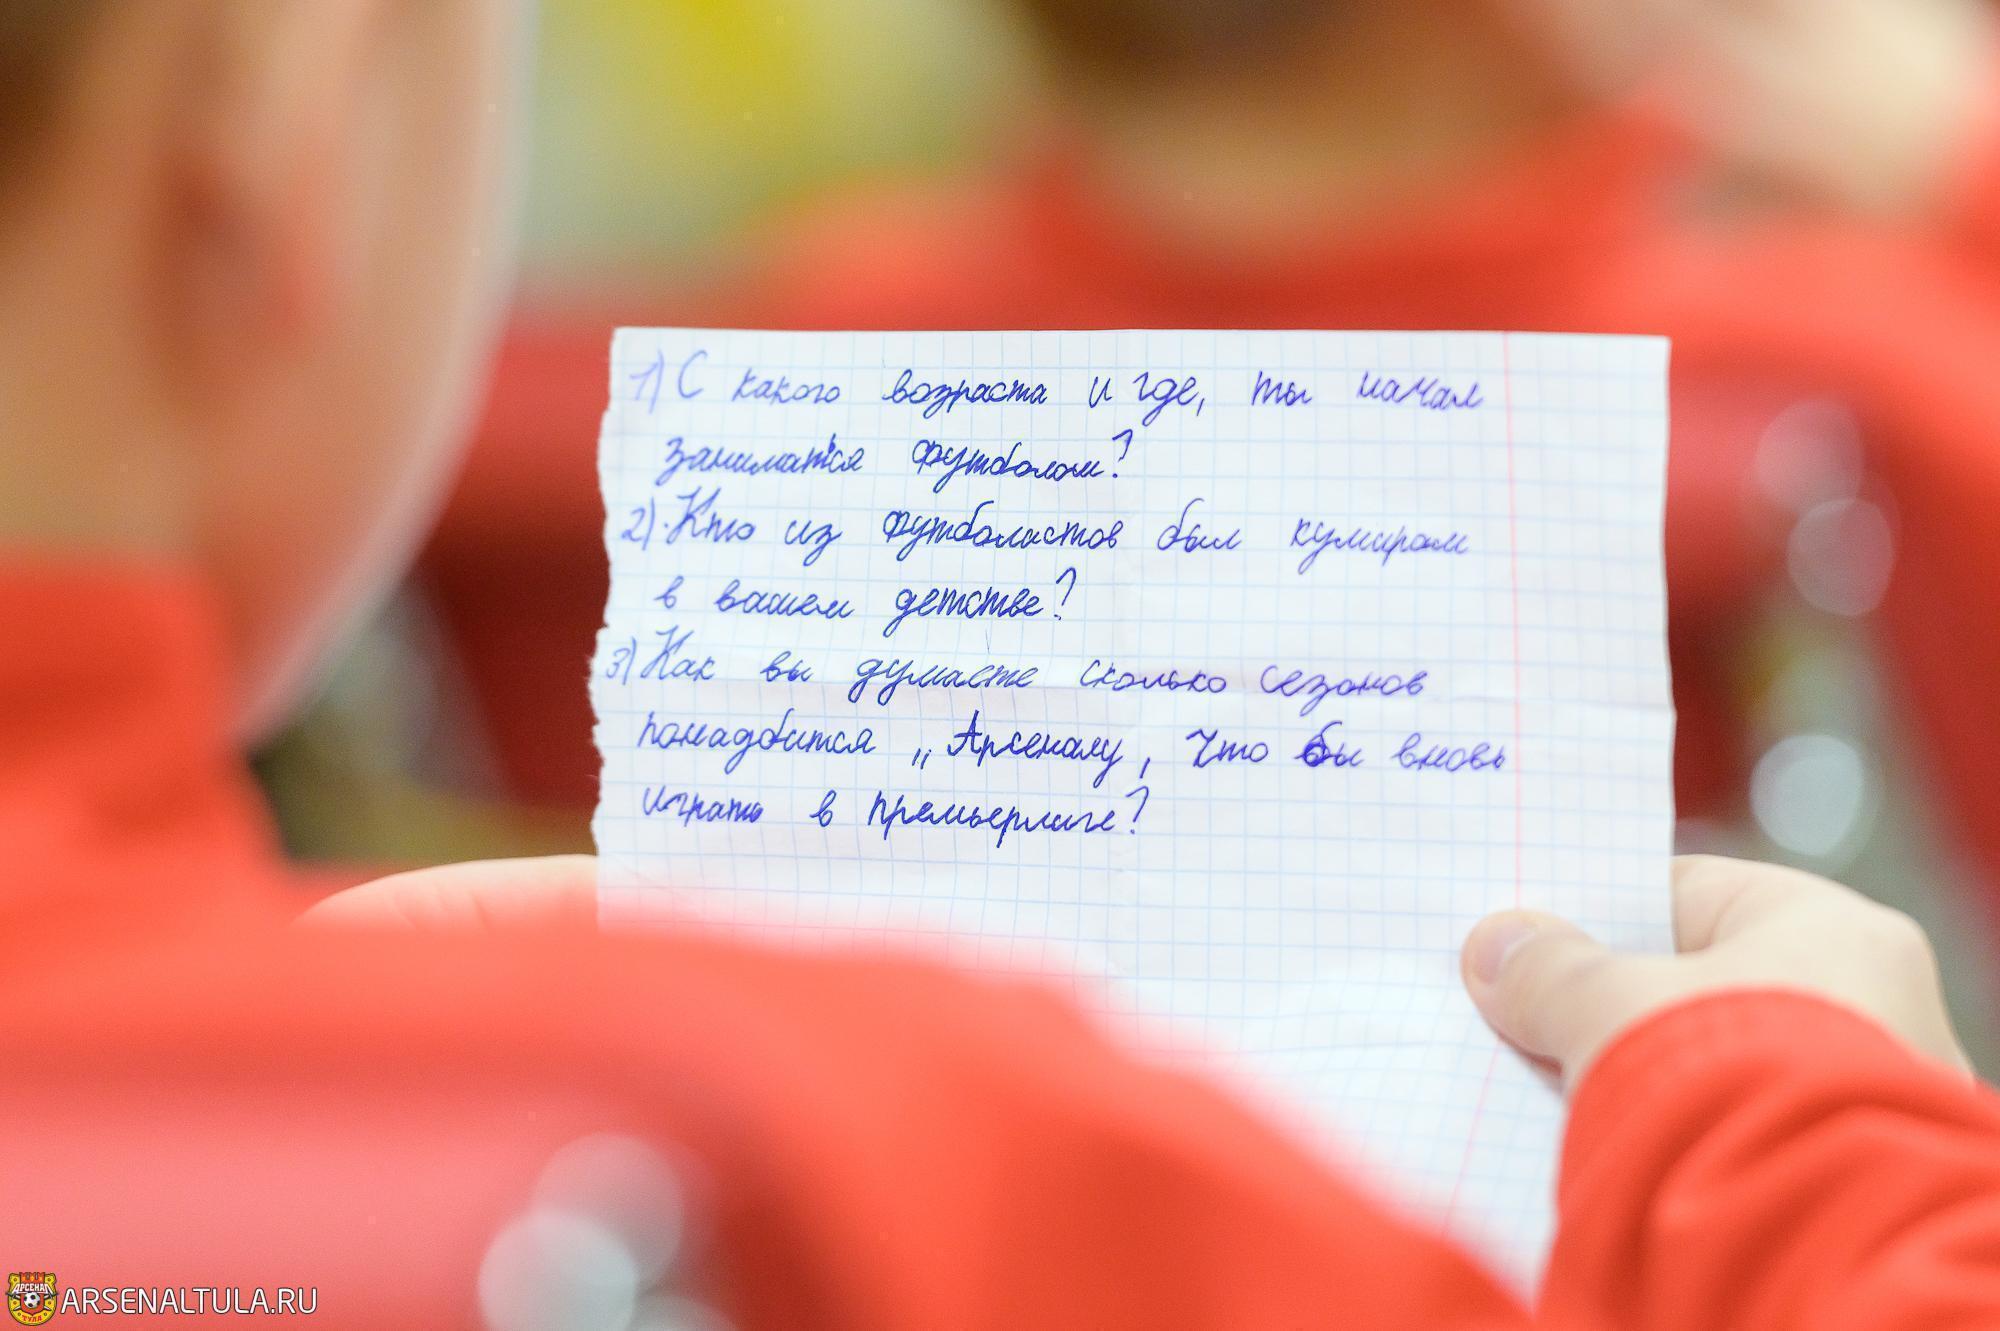 1) С какого возраста и где, ты начал
заниматься футболом?
2). Кто из футболистов был кумиром
в вашем детстве?
3) Как вы думаете сколько сезонов
понадобится „Арсеналу, что бы вновь
играть в премьерлиге?
АРСЕНАЛ
ТУЛА
ARSENALTULA.RU